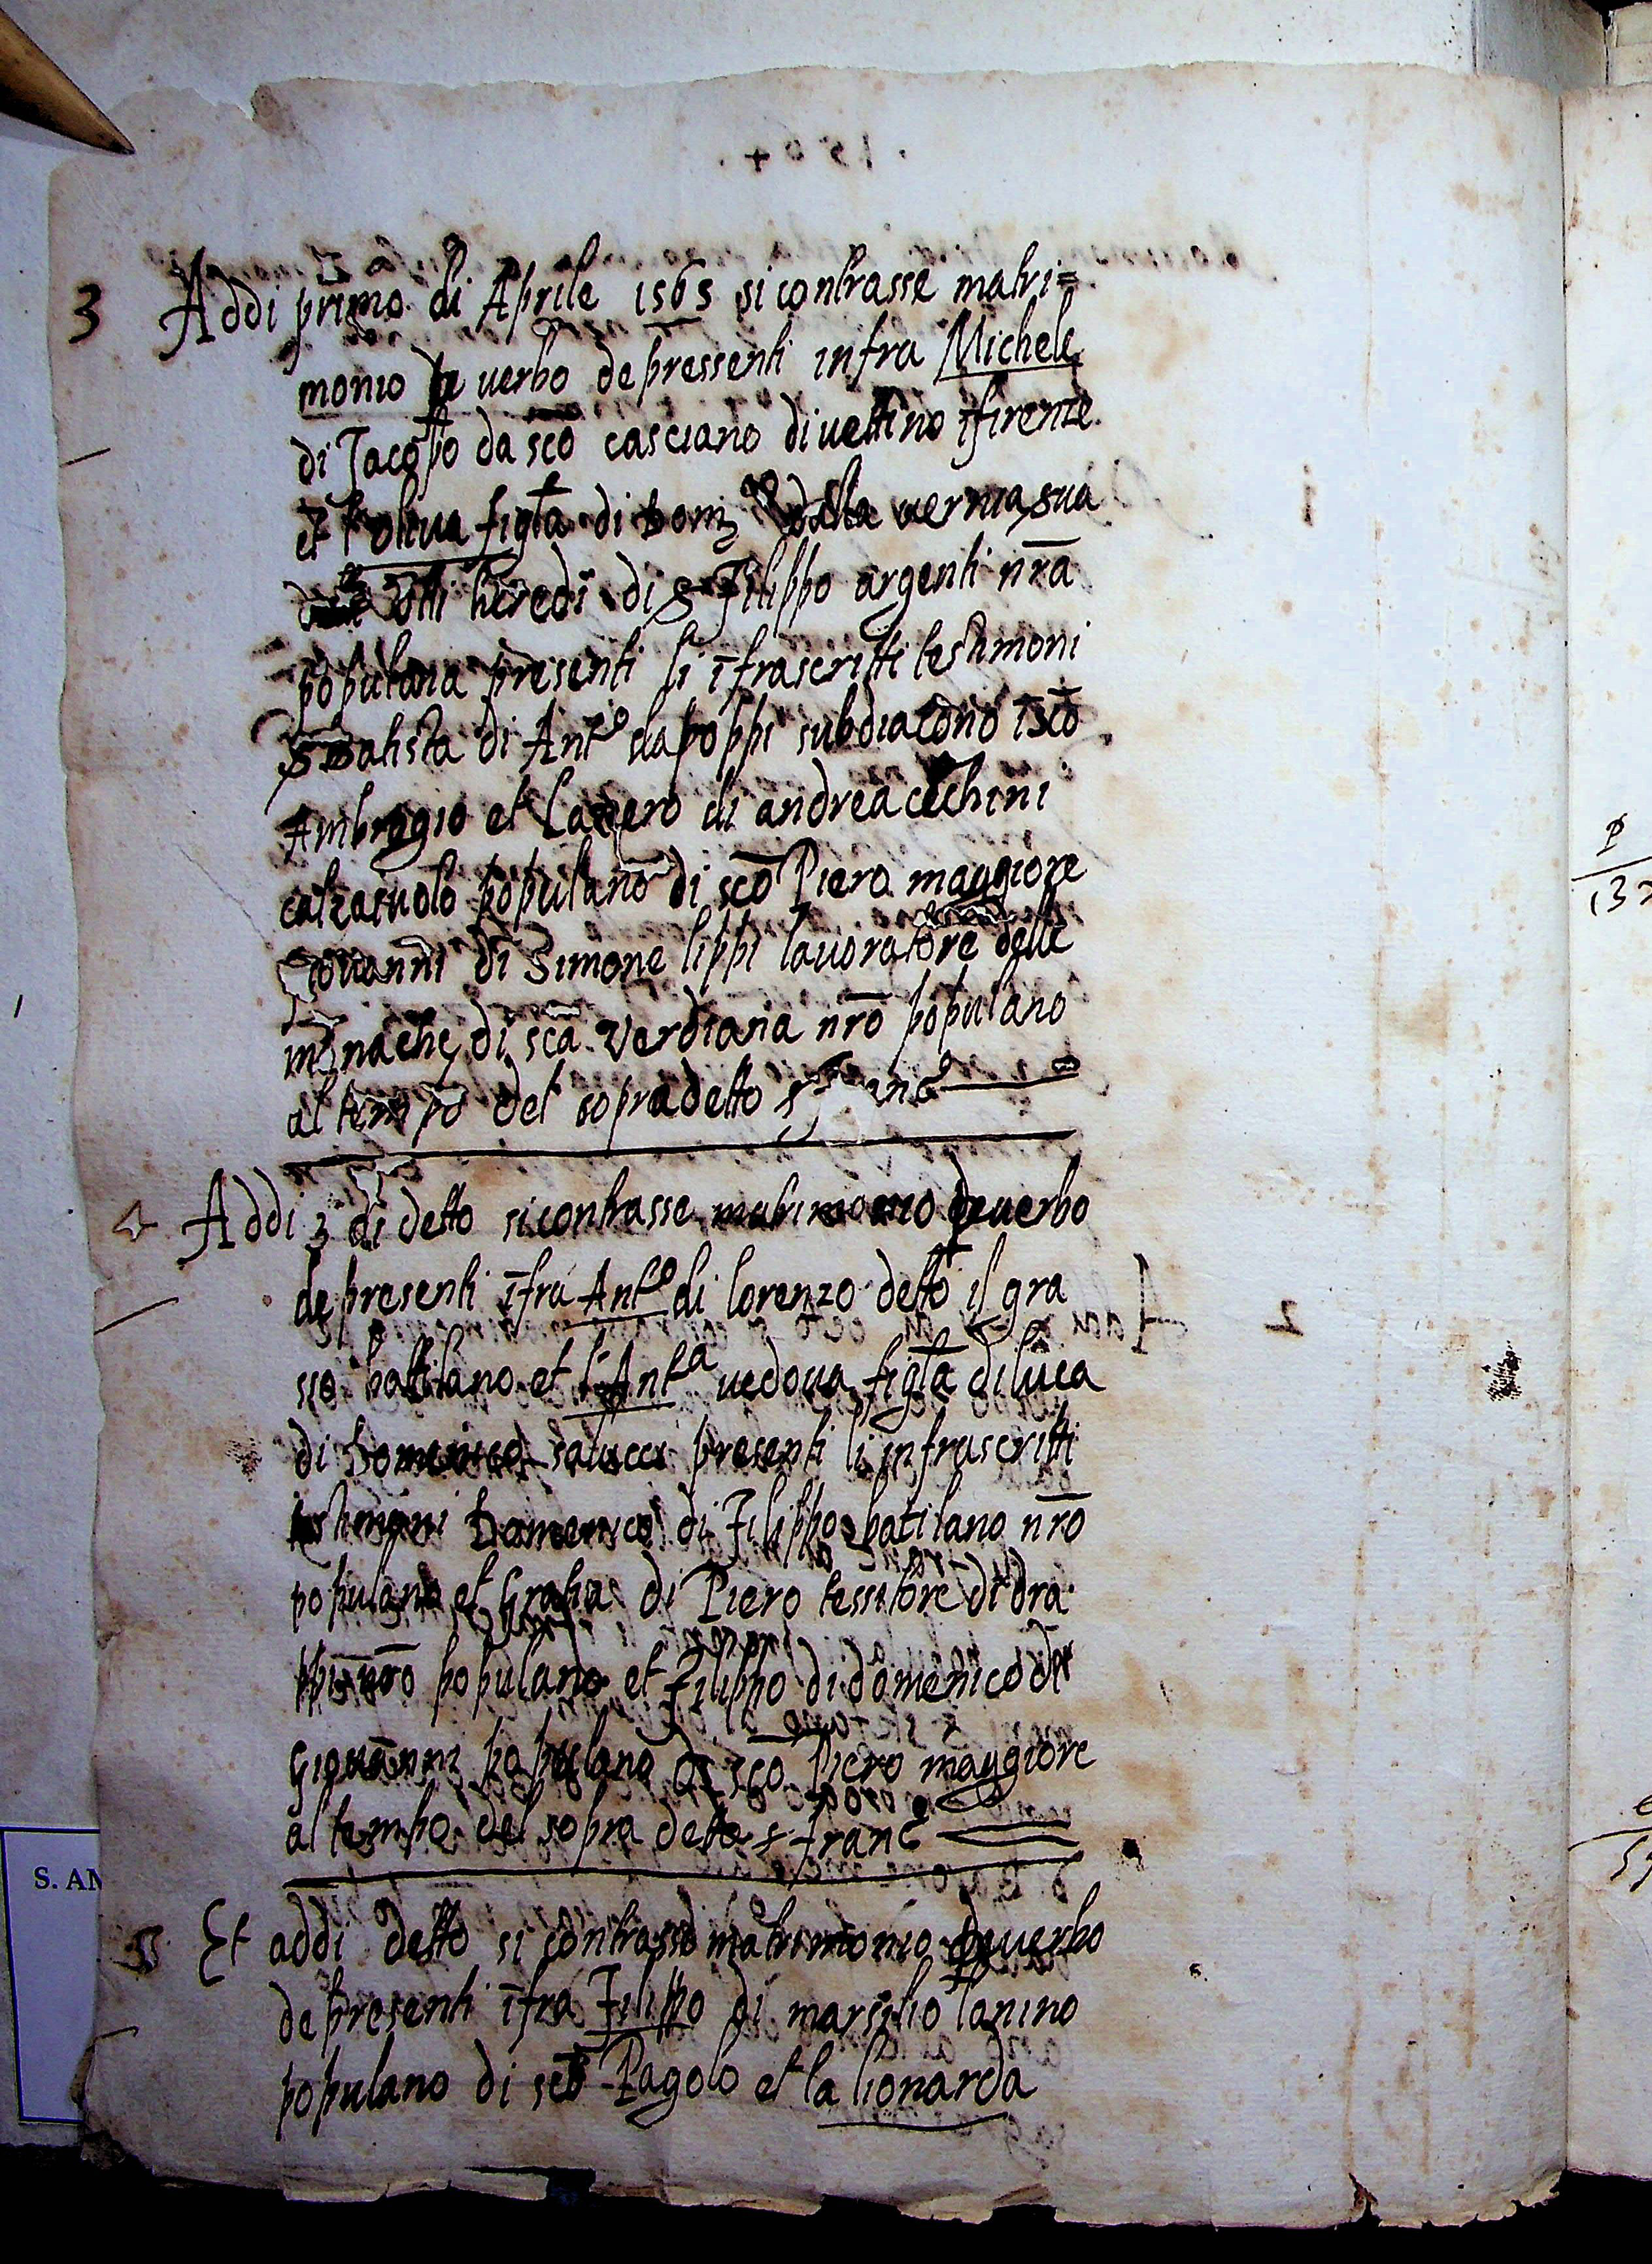 3 Addi primo di Aprile 1565 si contrasse matri=
monio p uerbo de pressenti infra Michele
di Jacopo da sc̄o casciano di uettino ī firenze
et l'oliua figl̄a di Dom dalla uernia sua
heredi di s Filippo argenti nr̄a
populana presenti li īfrascritti testimoni
s batista di Antº da poppi subdiacono ī sc̄o
Ambrogio et Lazero di andrea cechini
calzaiuolo populano di sc̄o Piero maggiore
Giouanni di Simone lippi lauoratore delle
monache di sc̄a Verdiana nr̄o populano
al tempo del sopradetto s franº
4 Addi 3 di detto si contrasse matrimonio p uerbo
de presenti īfra Antº di lorenzo detto il gra
sso battilano et l'Antª uedoua figl̄a di luca
di Domenico salucci presenti li infrascritti
testimoni Domenico di Filippo batilano nr̄o
populano et Gratia di Piero tessitore di dra
ppi nr̄o populano et Filippo di domenico di
Giouanni populano di sc̄o Piero maggiore
al tempo del sopra detto s franº
5 Et addi detto si contrasse matrimonio p uerbo
de presenti īfra Filippo di marsilio lanino
populano di sc̄o Pagolo et la lionarda
S. AM